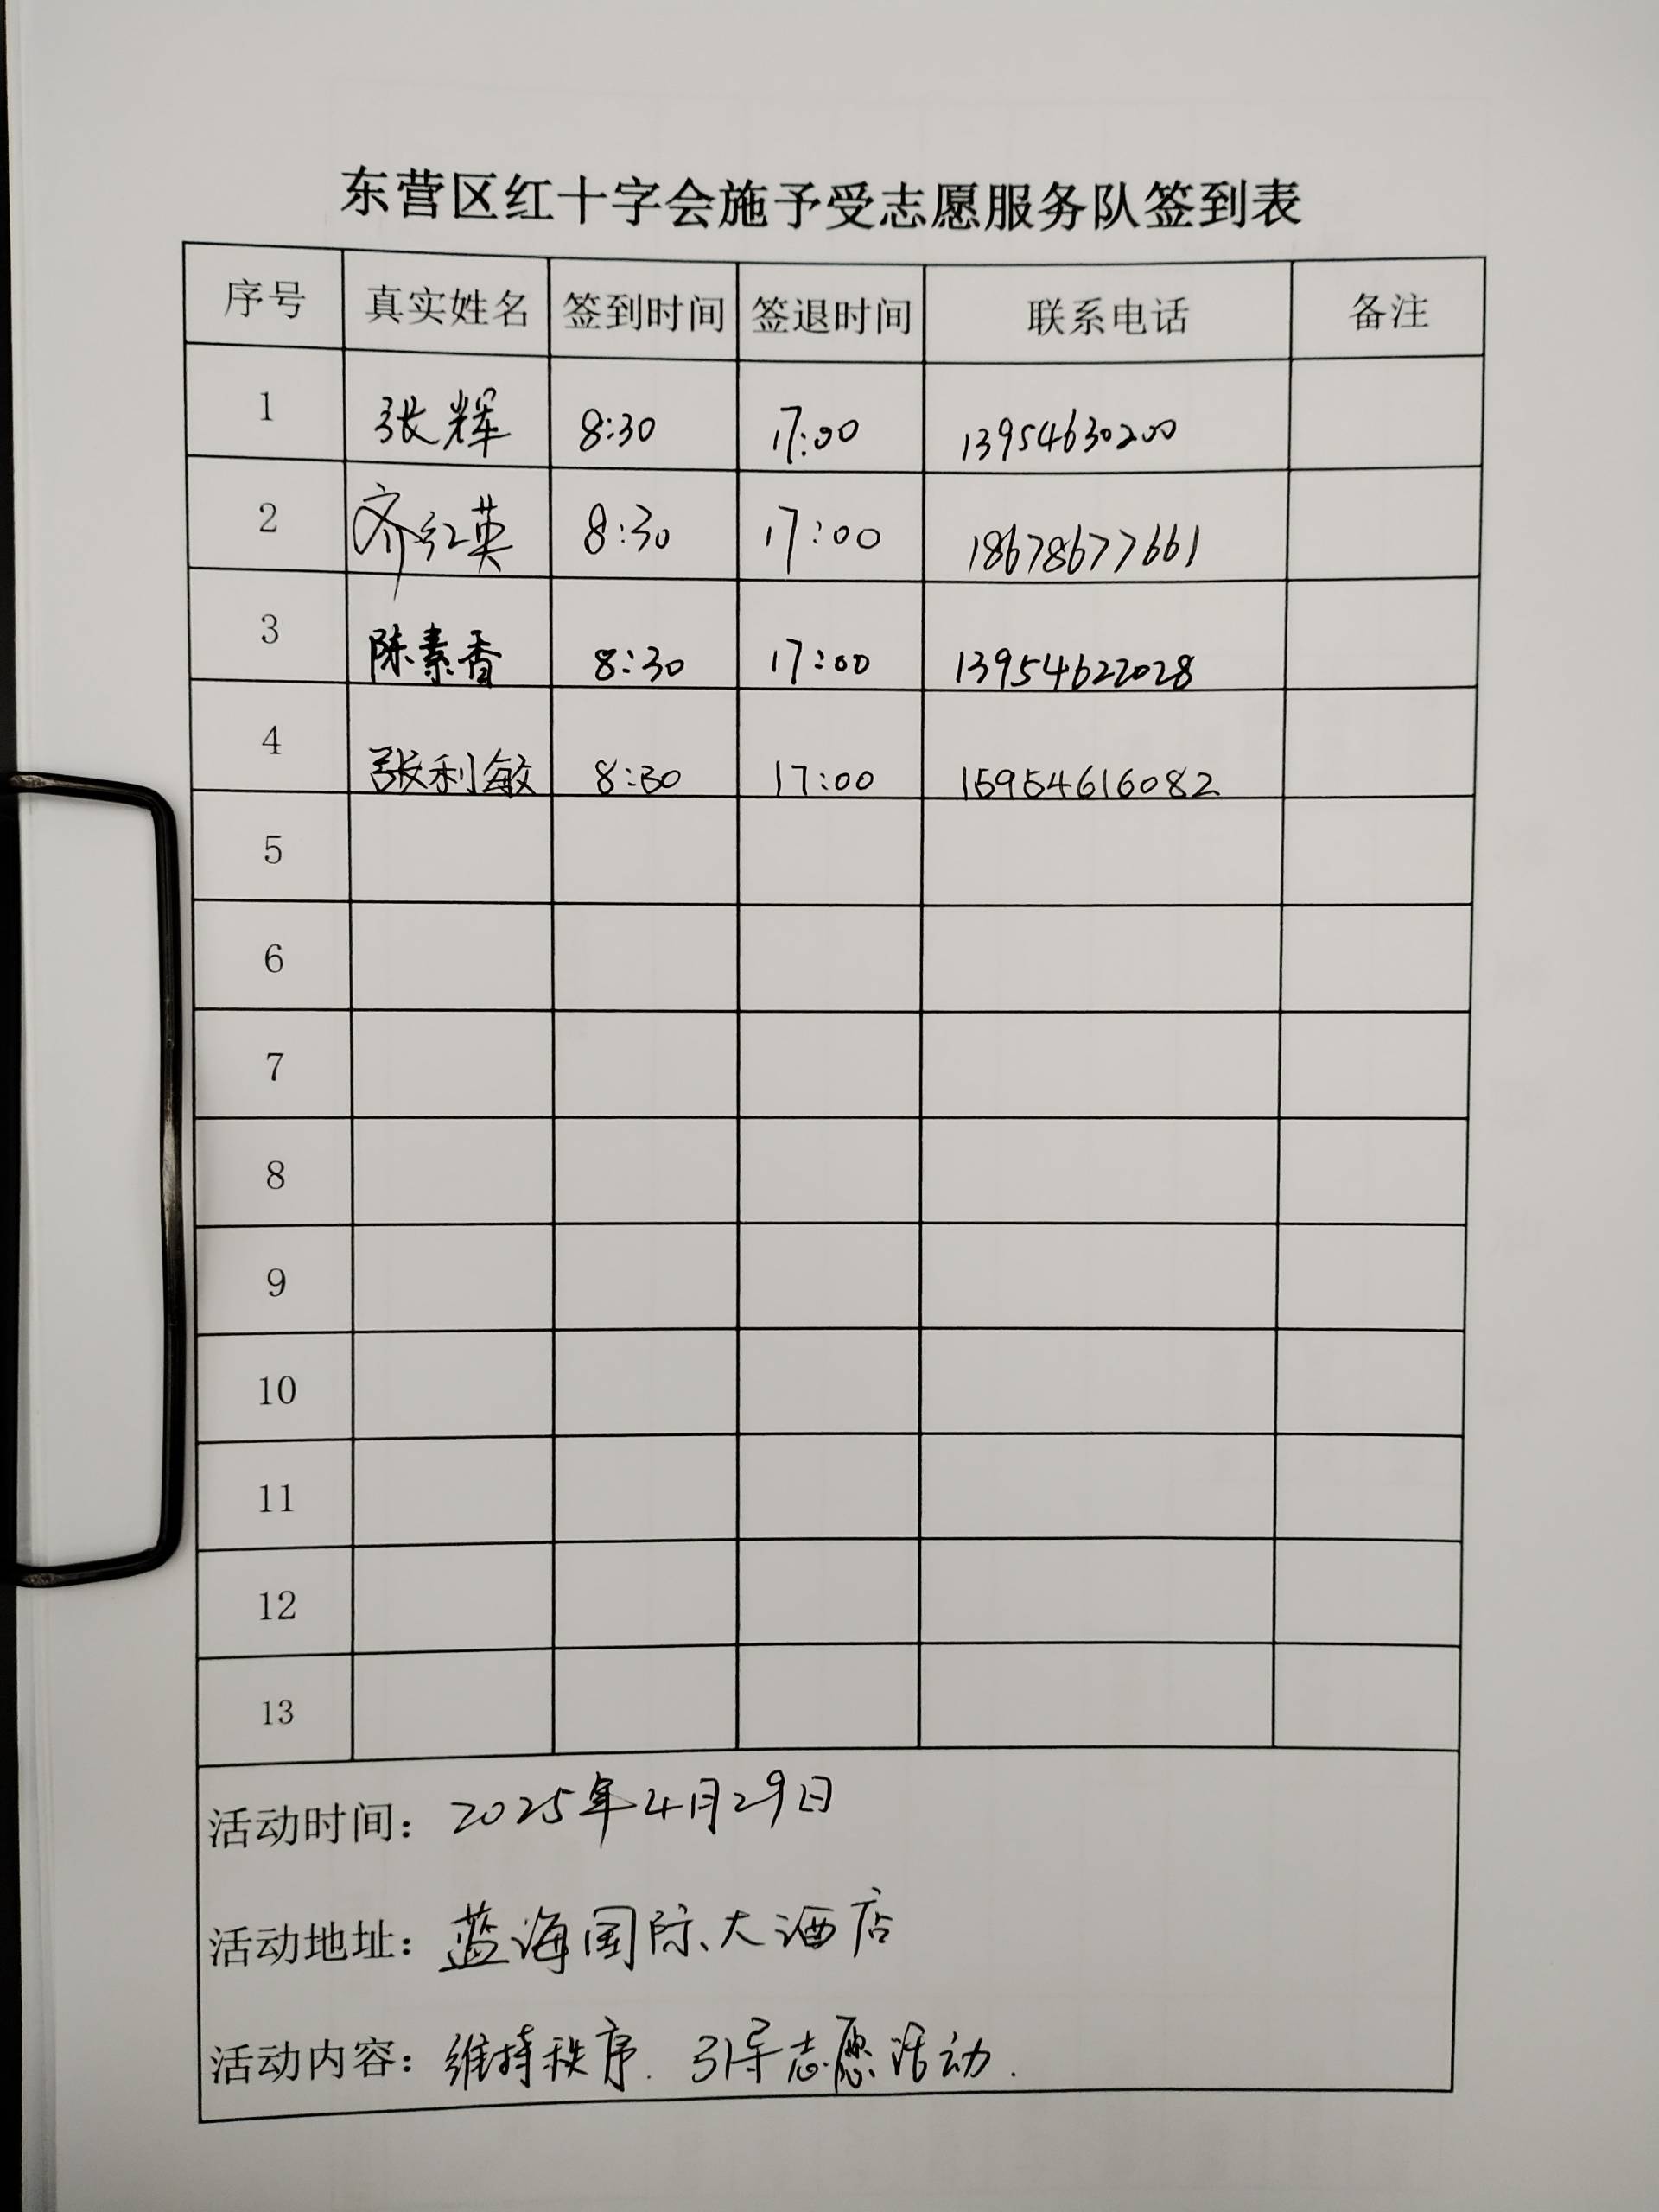 东营区红十字会施予受志愿服务队签到表
序号 真实姓名 签到时间 签退时间 联系电话 备注
1 张辉 8:30 17:00 13954630200
2 齐红英 8:30 17:00 18678677661
3 陈素香 8:30 17:00 13954622028
4 张利敏 8:30 17:00 15954616082
5
6
7
8
9
10
11
12
13
活动时间: 2025年4月29日
活动地址: 蓝海国际大酒店
活动内容: 维持秩序. 引导志愿活动.